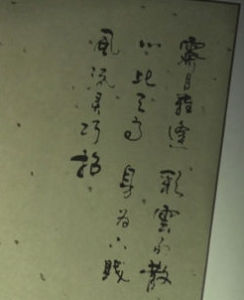 霽月難逢 彩雲易散
心比天高 身为下賤
風流灵巧招